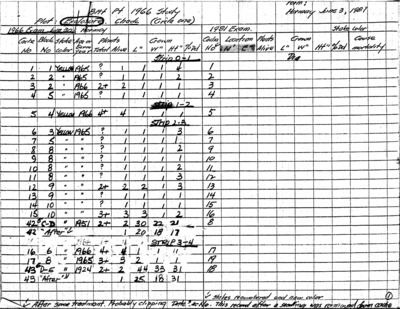 Form:
Bitt Pt 1966 Study
Hormay June 3, 1987
Plot Enclosure Check (Circle one)
1966 Exam. June 30 Hormay 1981 Exam. Stake Color
Cage No Block No Stake Color Exam Year Plants Total Alive L" Crown W" Ht" Cage No Location "N" "E" Plants Alive L" Crown W" Ht" Cause mortality
STRIP 0-1
1 1 Yellow 1965 ? 1 1 1 4 1
2 2 " 1965 ? 1 1 1 2 2
3 2 " 1966 2+ 2 1 1 1 3
4 5 " 1965 ? 1 1 1 1 4
STRIP 1-2
5 4 Yellow 1966 4+ 4 1 1 1 5
STRIP 2-3
6 3 Yellow 1965 ? 1 1 1 3 6
7 5 " " ? 1 1 1 1 7
8 8 " " ? 1 1 1 2 9
9 8 " " ? 1 1 1 1 10
10 8 " " ? 1 1 1 2 11
11 8 " " ? 1 1 1 3 12
12 9 " " 2+ 2 2 1 3 13
13 9 " " ? 1 1 1 1 14
14 10 " " ? 1 1 1 1 15
15 10 " " 3+ 3 3 1 2 16
42 C-D " 1951 2+ 2 30 22 21 8
42 "After" 1 20 18 17
STRIP 3-4
16 6 " 1966 4+ 4 1 1 1 17
17 8 " 1965 3+ 3 2 1 1 19
43 D-E " 1924 2+ 2 44 33 31 18
43 "After" 1 25 18 31
Stakes renumbered and new color
After some treatment. Probably clipping
This record after a
was removed from